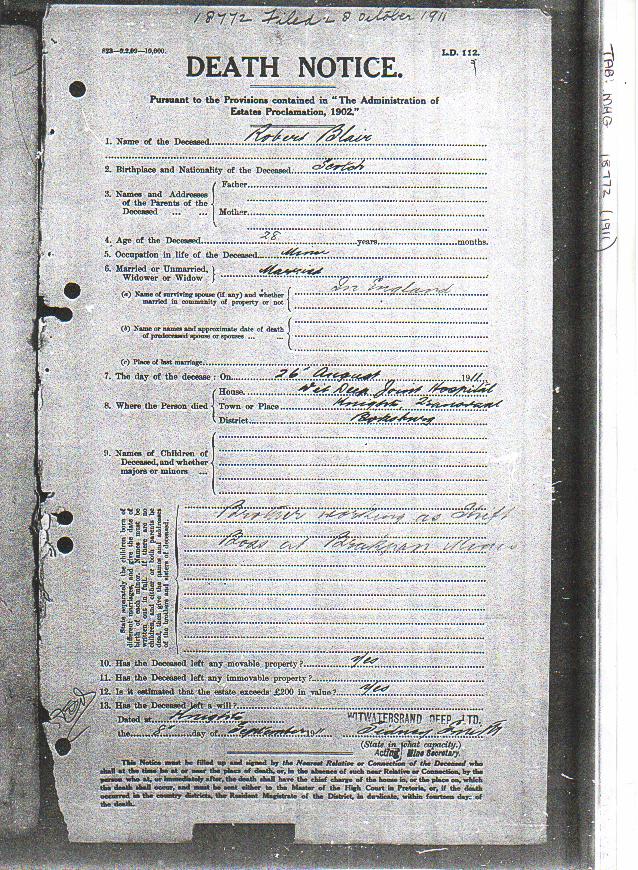 18772 Filed 28 October 1911
823—9.2.09—10,000.
L.D. 112.
DEATH NOTICE.
Pursuant to the Provisions contained in "The Administration of
Estates Proclamation, 1902."
1. Name of the Deceased Robert Blair
2. Birthplace and Nationality of the Deceased Scotch
3. Names and Addresses of the Parents of the Deceased
Father
Mother
4. Age of the Deceased 28 years months.
5. Occupation in life of the Deceased Miner
6. Married or Unmarried, Widower or Widow Married
(a) Name of surviving spouse (if any) and whether married in community of property or not In England
(b) Name or names and approximate date of death of predeceased spouse or spouses
(c) Place of last marriage
7. The day of the decease: On 26 August 1911
8. Where the Person died
House. Wit Deep Joint Hospital
Town or Place Knights, Transvaal
District Boksburg
9. Names of Children of Deceased, and whether majors or minors
State separately the children born of
different marriages, and give the date of
birth of each minor. Names must be
written out in full. If there are no
children, and either or both parents be
dead, then give the names and addresses
of the brothers and sisters of deceased.
Brother working as Shift
Boss at Brakpan Mines
10. Has the Deceased left any movable property? Yes
11. Has the Deceased left any immovable property?
12. Is it estimated that the estate exceeds £200 in value? Yes
13. Has the Deceased left a will?
Dated at Knights
the 8 day of September 1911
WITWATERSRAND DEEP, LTD.
Sidney Smith
(State in what capacity.)
Acting Mine Secretary.
This Notice must be filled up and signed by the Nearest Relative or Connection of the Deceased who
shall at the time be at or near the place of death, or, in the absence of such near Relative or Connection, by the
person who at, or immediately after, the death shall have the chief charge of the house in, or the place on, which
the death shall occur, and must be sent either to the Master of the High Court in Pretoria, or, if the death
occurred in the country districts, the Resident Magistrate of the District, in duplicate, within fourteen days of
the death.
TAB: MHG 18772 (1911)